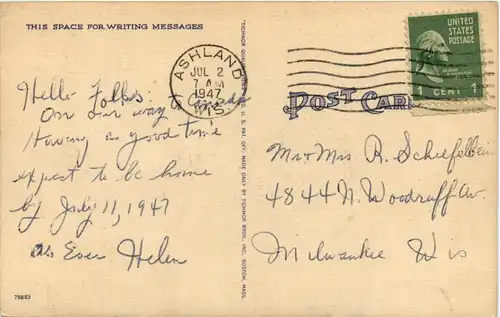 THIS SPACE FOR WRITING MESSAGES
Hello Folks:
On our way to Canada
Having a good time
expect to be home
by July 11, 1947
As Ever Helen
75853
TECHNOR BROS., INC., BOSTON, MASS.
ASHLAND
JUL 2
7 AM
1947
WIS.
UNITED
STATES
POSTAGE
1 CENT 1
POST CARD
Mr & Mrs R. Schiefelbein
4844 N. Woodruff Av.
Milwaukee Wis